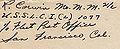 R. Corwin Mo.M.M. 2/c
U.S.S. L.C.I. (L) 1077
c/o Fleet Post Office
San Francisco, Cal.